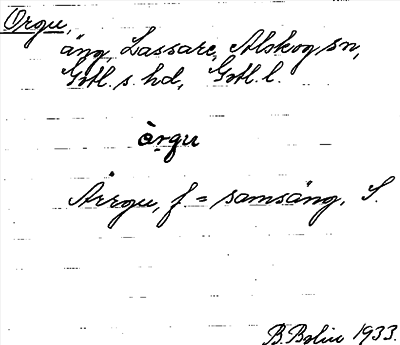 Orgu,
äng, Lassarc, Alskog sn,
Gotl. s. hd, Gotl. l.
àrgu
Årrgu, f = samsäng. S.
B. Bolin 1933.